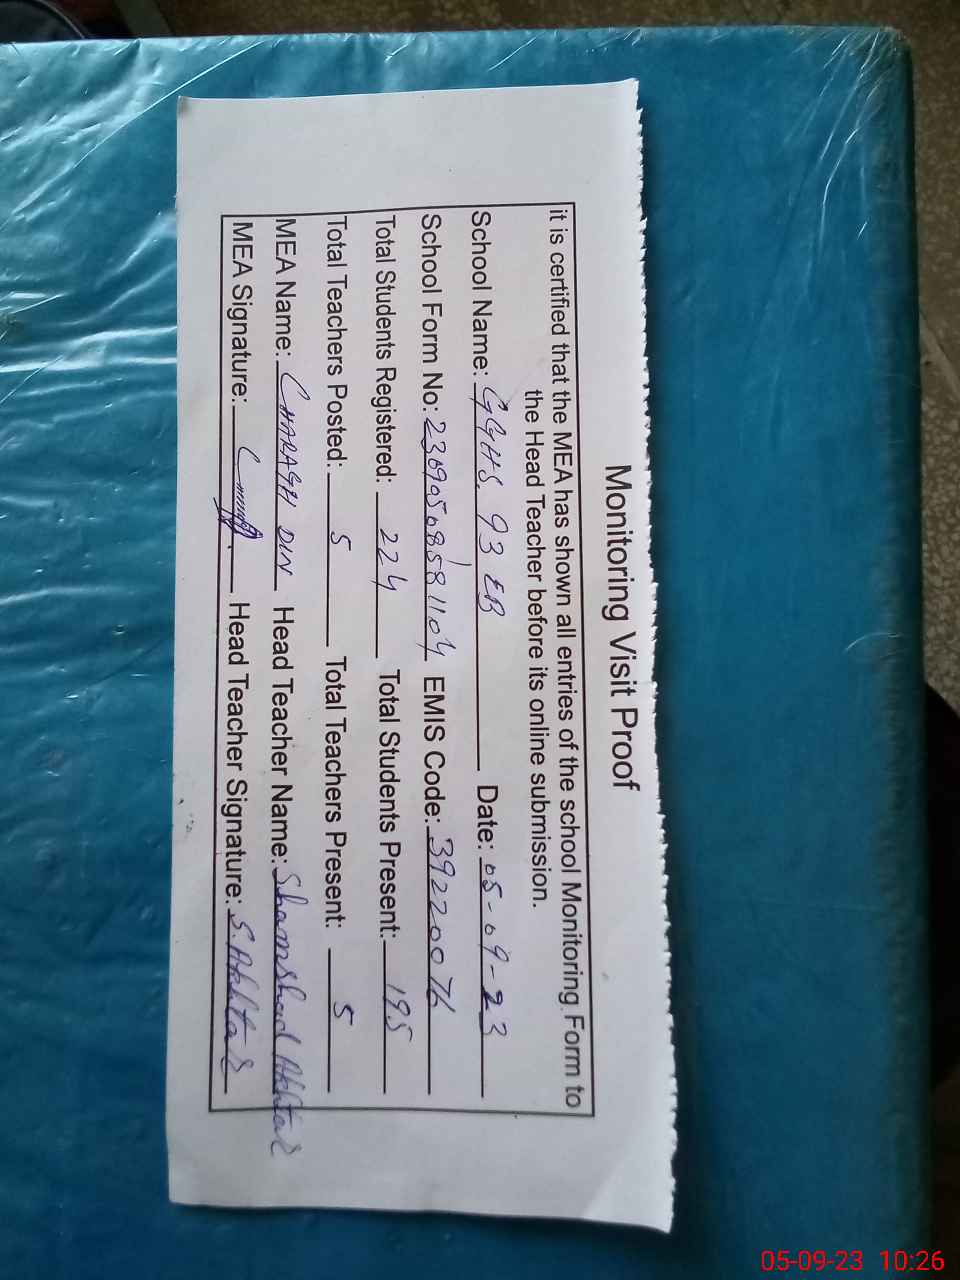 Monitoring Visit Proof
it is certified that the MEA has shown all entries of the school Monitoring Form to
the Head Teacher before its online submission.
School Name: GGHS. 93 EB Date: 05-09-23
School Form No: 23090508581104 EMIS Code: 39220076
Total Students Registered: 224 Total Students Present: 195
Total Teachers Posted: 5 Total Teachers Present: 5
MEA Name: CHARAGH DIN Head Teacher Name: Shamshad Akhtar
MEA Signature: Head Teacher Signature: S. Akhtar
05-09-23 10:26